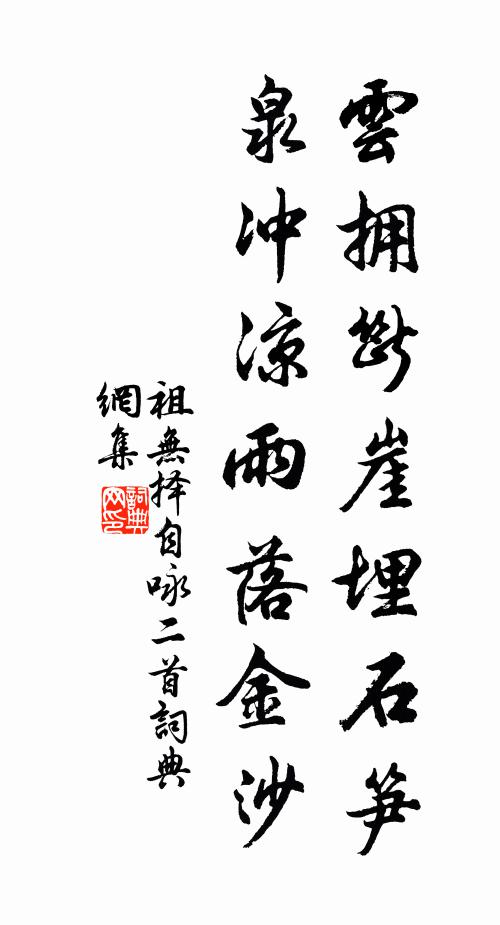 雲拥斷崖埋石笋
泉冲凉雨落金沙
祖無择自咏二首詞典
網集
詞典
网印